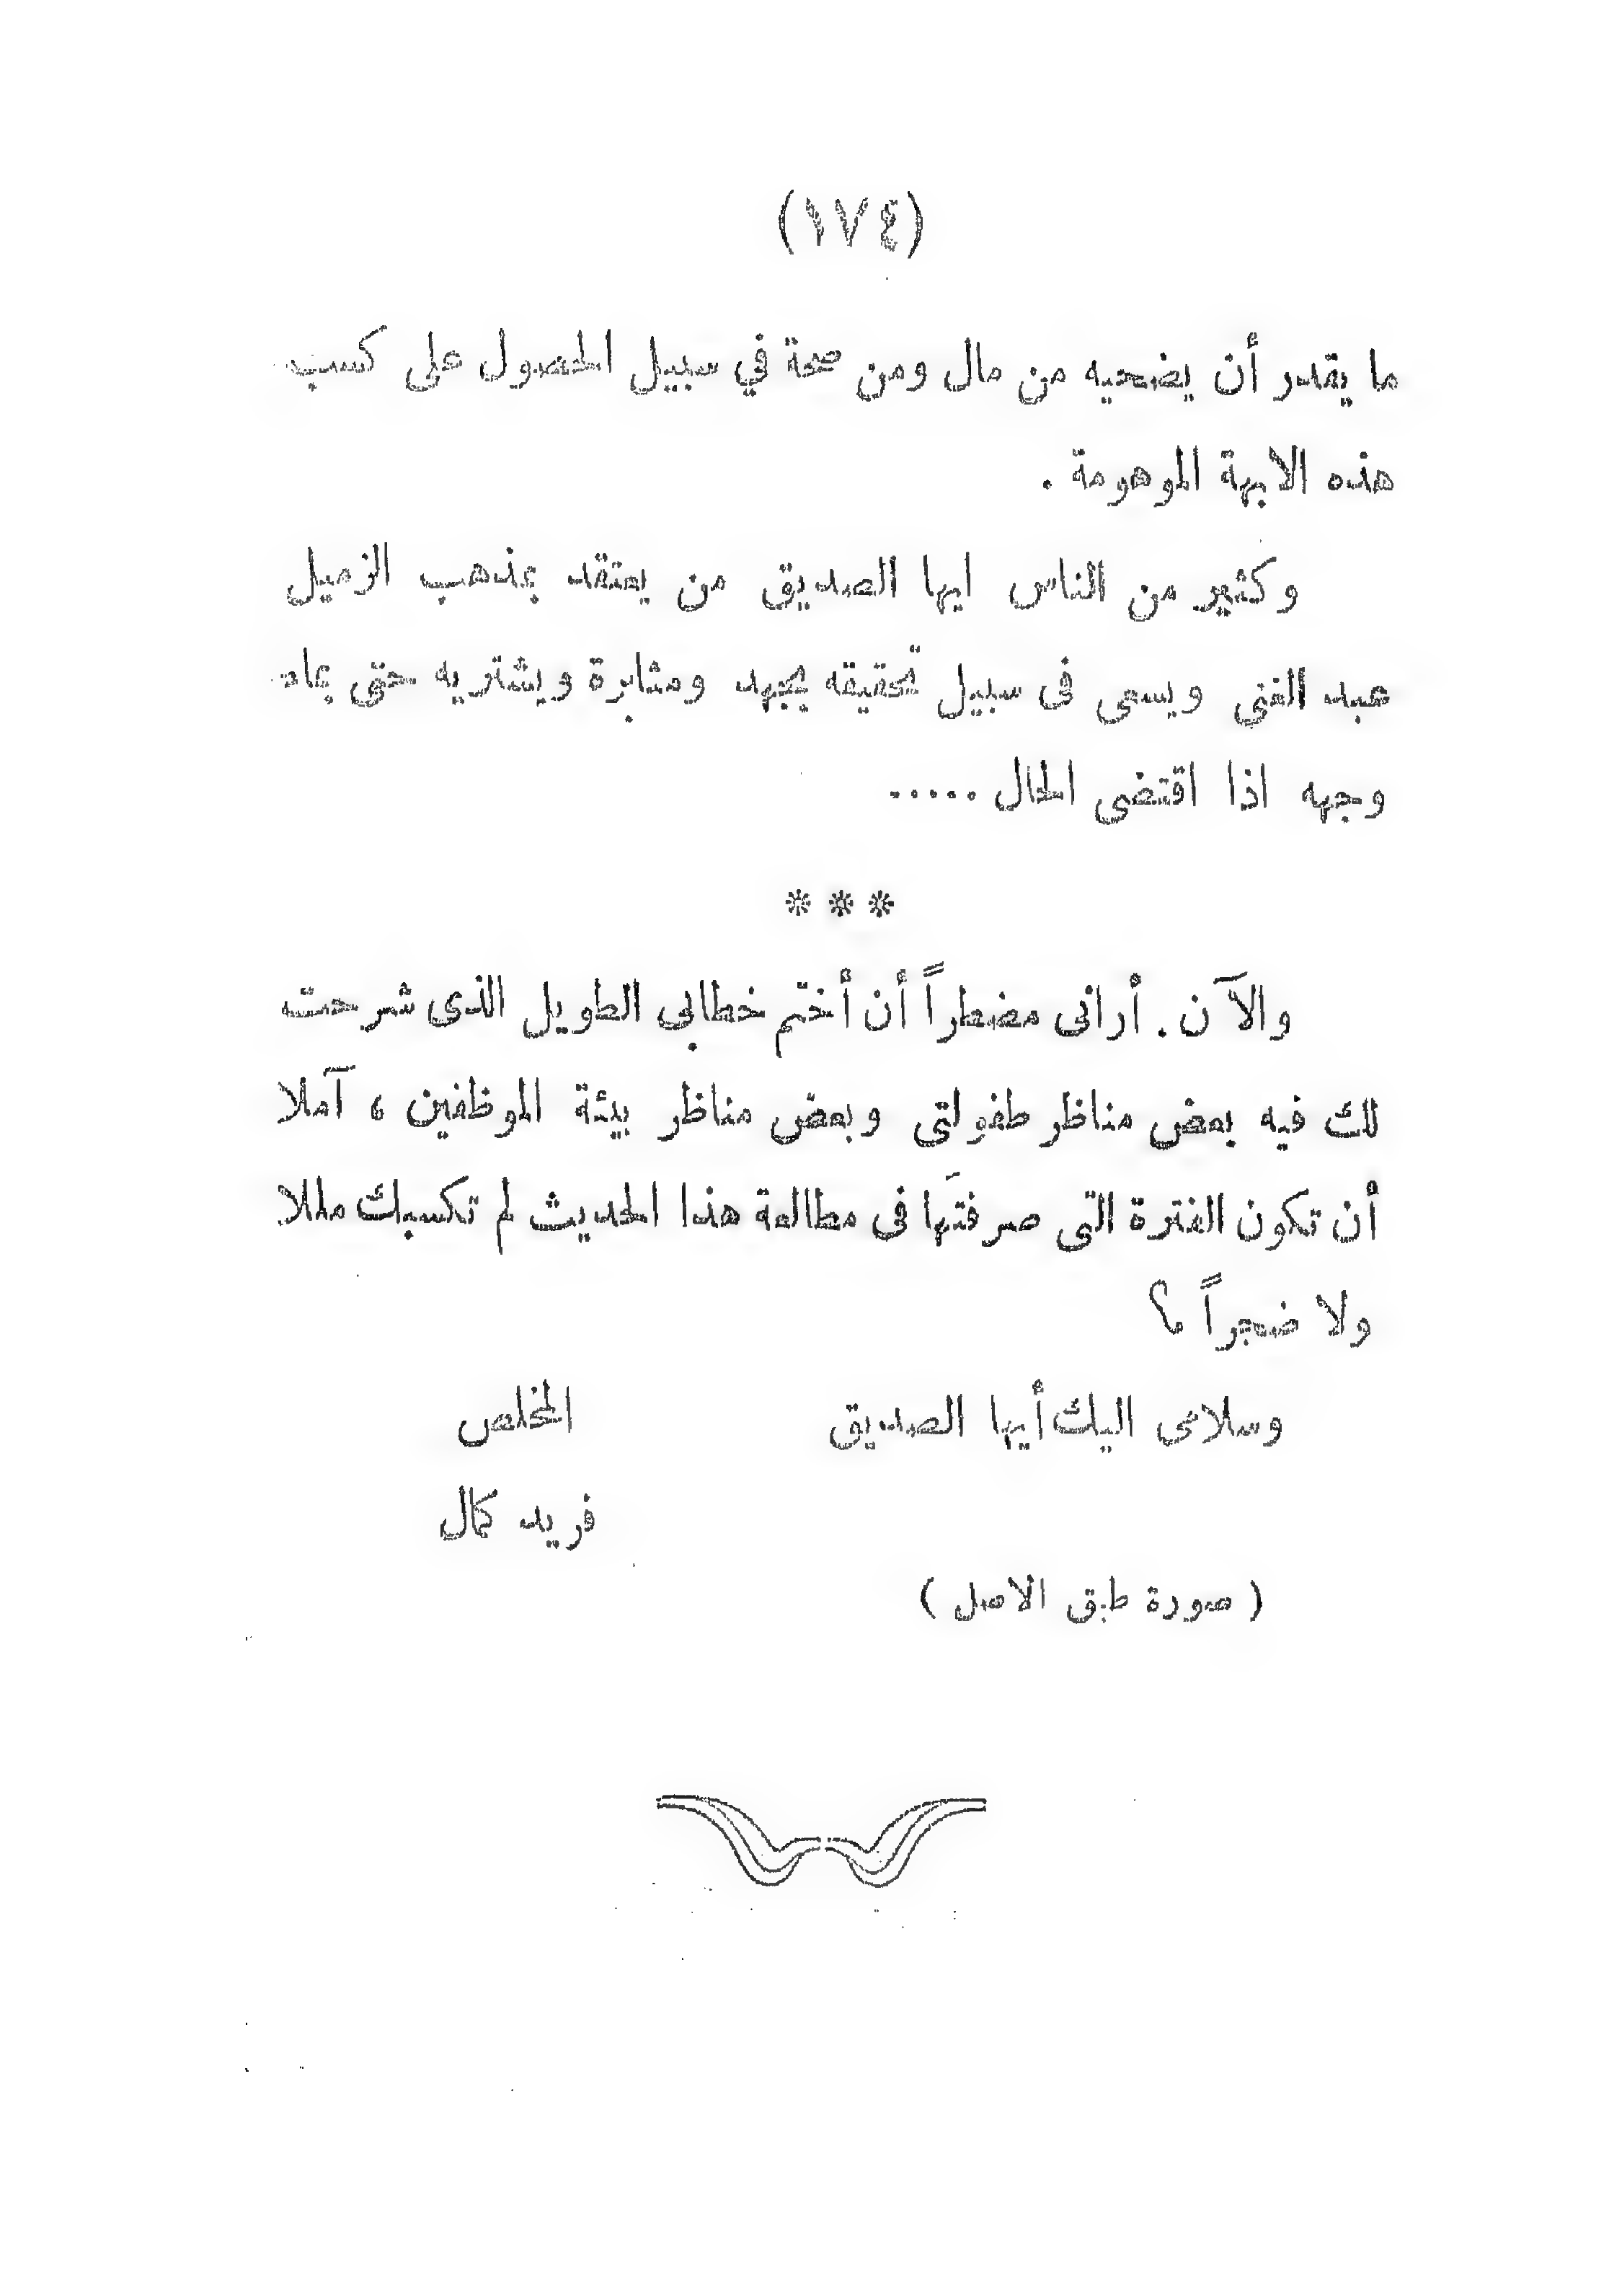 (١٧٤)
ما يقدر أن يضحيه من مال ومن صحة في سبيل الحصول على كسب
هذه الابهة الموهومة .
وكثير من الناس ايها الصديق من يعتقد بمذهب الزميل
عبد الغنى ويسعى فى سبيل تحقيقه بجهد ومثابرة ويشتريه حتى بماء
وجهه اذا اقتضى الحال .....
* * *
والآن . أرانى مضطراً أن أختم خطابي الطويل الذى شرحت
لك فيه بعض مناظر طفولتى وبعض مناظر بيئة الموظفين ، آملا
أن تكون الفترة التى صرفتَها فى مطالعة هذا الحديث لم تكسبك مللا
ولا ضجراً ؟
وسلامى اليك أيها الصديق المخلص
فريد كمال
( صورة طبق الاصل )